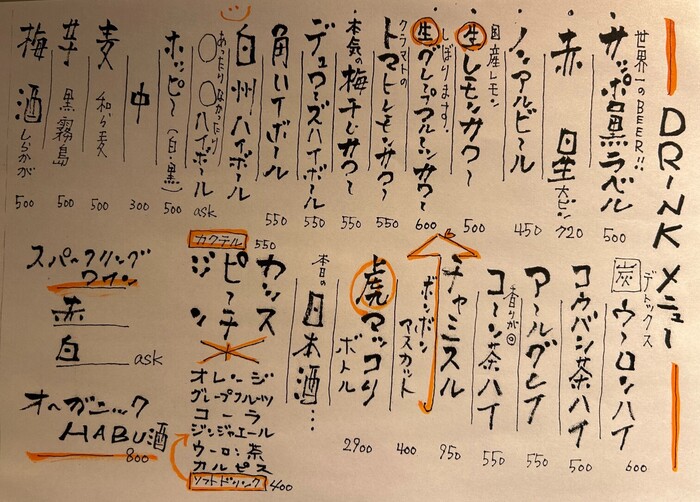 DRINK メニュー
世界一のBEER!!
サッポロ黒ラベル
500
赤 星 大ビン
720
ノンアルビール
450
国産レモン
生レモンサワー
500
しぼります!
生グレープフルーツサワー
600
クラマトの
トマトレモンサワー
550
本気の梅干しサワー
550
デュワーズハイボール
550
角ハイボール
550
白州ハイボール
550
あったりなかったり
〇〇ハイボール
ask
ホッピー(白・黒)
500
中
300
麦 和ら麦
500
芋 黒霧島
500
梅酒 しらかが
500
デトックス
炭 ウーロンハイ
600
コウバン茶ハイ
500
アールグレイ
550
香りが◎
コーン茶ハイ
550
チャミスル
950
ボンボン
マスカット
400
虎マッコリ
ボトル
2900
本日の
日本酒…
カクテル
カシス
ピーチ
ジン
オレンジ
グレープフルーツ
コーラ
ジンジャエール
ウーロン茶
カルピス
ソフトドリンク 400
スパークリング
ワイン
赤
白
ask
オーガニック
HABU酒
800